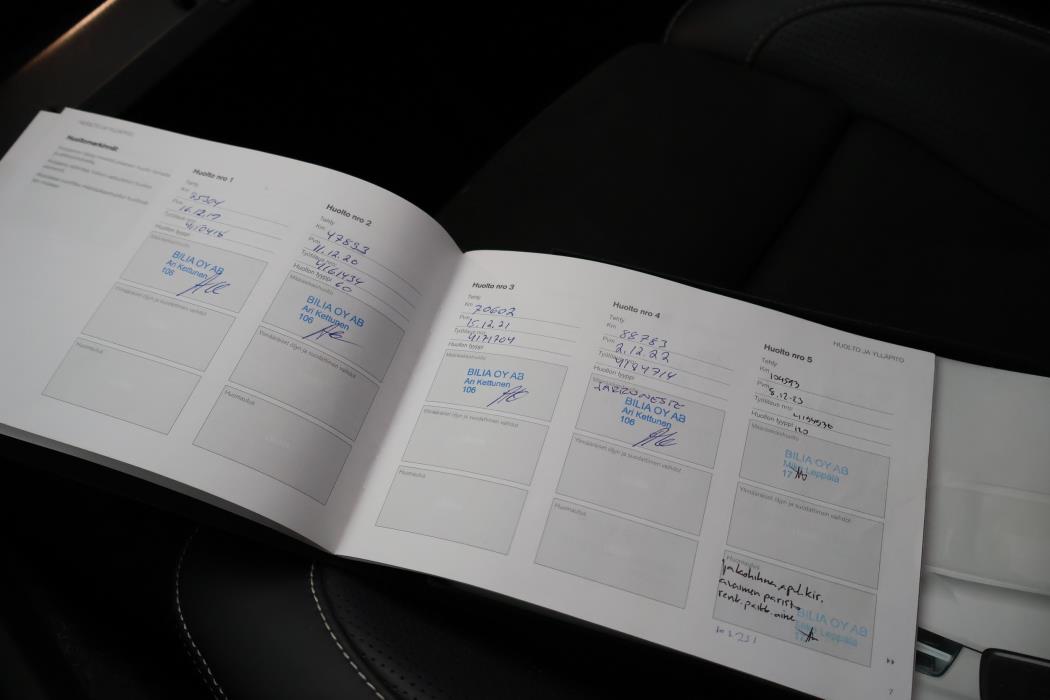 HUOLTO JA YLLÄPITO
Huoltomerkinnät
Huolto nro 1
Tehty
Km 25304
Pvm 16.12.19
Työtilaus nro:
Huollon tyyppi
Määräaikaishuolto
BILIA OY AB
Ari Kettunen
106
Ylimääräiset öljyn ja suodattimen vaihdot
Huomautus
Huolto nro 2
Tehty
Km 47893
Pvm 11.12.20
Työtilaus nro: 4161434
Huollon tyyppi 60
Määräaikaishuolto
BILIA OY AB
Ari Kettunen
106
Ylimääräiset öljyn ja suodattimen vaihdot
Huomautus
Huolto nro 3
Tehty
Km 70602
Pvm 15.12.21
Työtilaus nro: 4171704
Huollon tyyppi
Määräaikaishuolto
BILIA OY AB
Ari Kettunen
106
Ylimääräiset öljyn ja suodattimen vaihdot
Huomautus
Huolto nro 4
Tehty
Km 88783
Pvm 2.12.22
Työtilaus nro: 4184714
Huollon tyyppi
Määräaikaishuolto
JARRUNESTE
BILIA OY AB
Ari Kettunen
106
Ylimääräiset öljyn ja suodattimen vaihdot
Huomautus
HUOLTO JA YLLÄPITO
Huolto nro 5
Tehty
Km 104593
Pvm 8.12.23
Työtilaus nro:
Huollon tyyppi 120
Määräaikaishuolto
BILIA OY AB
Mika Leppälä
17
Ylimääräiset öljyn ja suodattimen vaihdot
Huomautus
jakohihna, apul. kir.
avaimen paristo
renk. paikk. aine
BILIA OY AB
Mika Leppälä
7